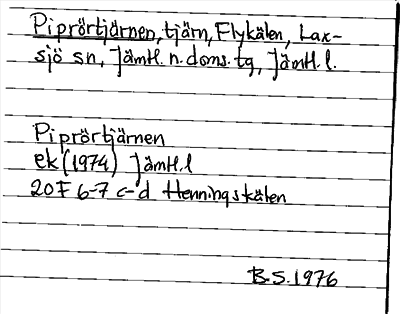 Piprörtjärnen, tjärn, Flykälen, Lax-
sjö sn, Jämtl. n. doms. tg, Jämtl. l.
Piprörtjärnen
ek (1974) Jämtl. l
20F 6-7 c-d Henningskälen
B.S. 1976